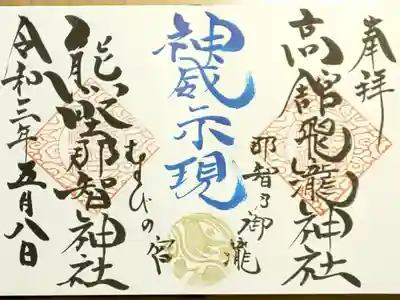 奉拝
高舘飛瀧神社
那智乃御瀧
神威示現
むすびの宿
熊野那智神社
令和三年五月八日